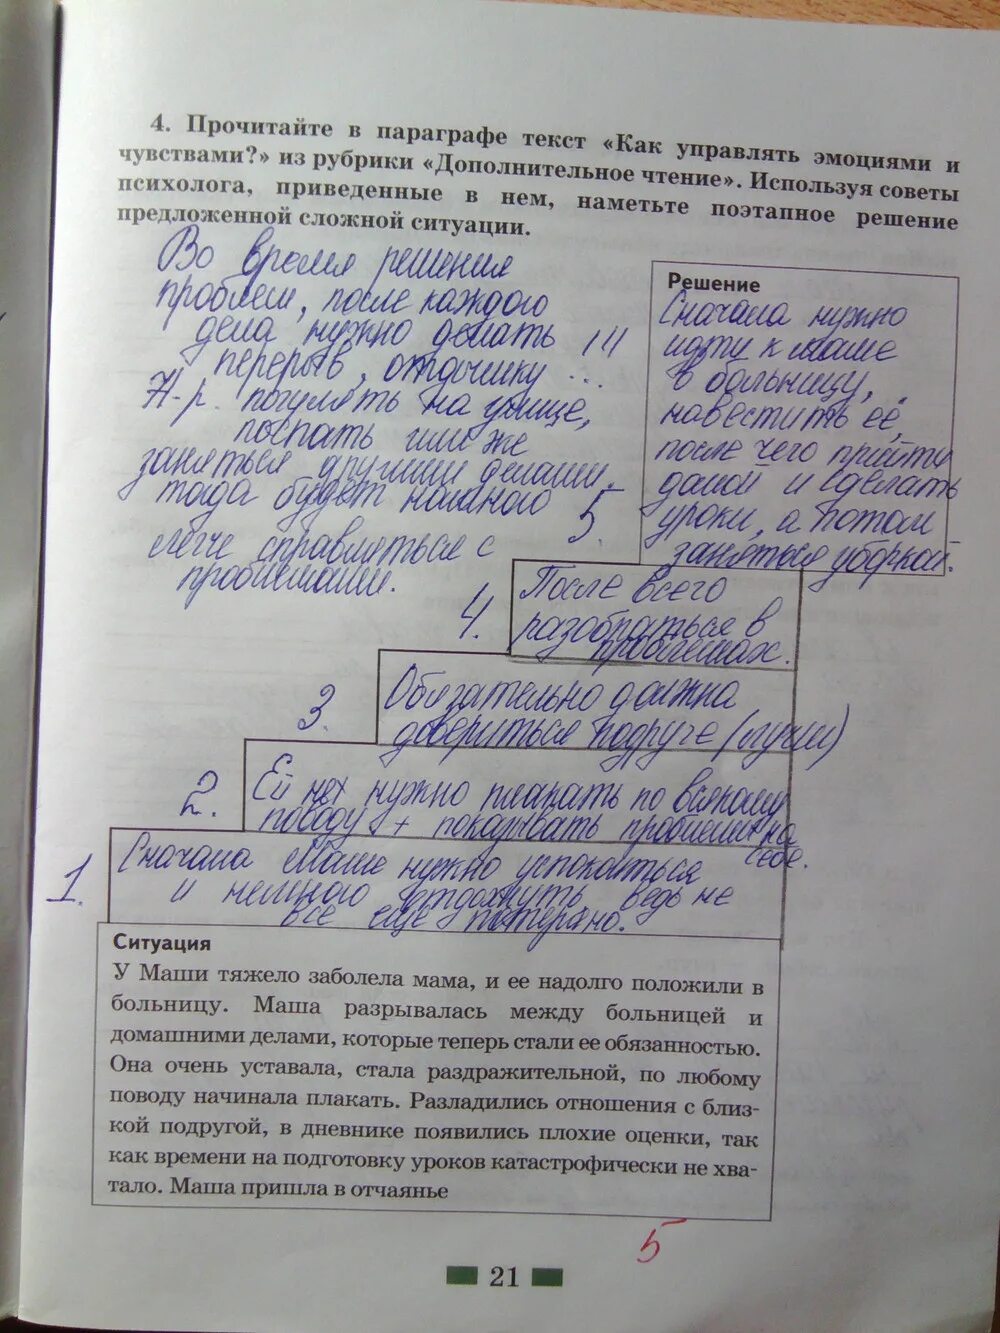 4. Прочитайте в параграфе текст «Как управлять эмоциями и
чувствами?» из рубрики «Дополнительное чтение». Используя советы
психолога, приведенные в нем, наметьте поэтапное решение
предложенной сложной ситуации.
Во время решения
проблем, после каждого
дела нужно делать
перерыв, отдышку ...
Н-р. погулять на улице,
поспать или же
заняться другими делами.
тогда будет намного
легче справляться с
проблемами.
Решение
Сначала нужно
идти к маме
в больницу,
навестить её,
после чего прийти
домой и сделать
уроки, а потом
заняться уборкой.
5.
4.
После всего
разобраться в
проблемах.
3.
Обязательно должна
довериться подруге (лучшей)
2.
Ей не нужно плакать по всякому
поводу + показывать проблемы на
себе.
1.
Сначала Маше нужно успокоиться
и немного отдохнуть ведь не
всё ещё потеряно.
Ситуация
У Маши тяжело заболела мама, и ее надолго положили в
больницу. Маша разрывалась между больницей и
домашними делами, которые теперь стали ее обязанностью.
Она очень уставала, стала раздражительной, по любому
поводу начинала плакать. Разладились отношения с близ-
кой подругой, в дневнике появились плохие оценки, так
как времени на подготовку уроков катастрофически не хва-
тало. Маша пришла в отчаянье
5
21